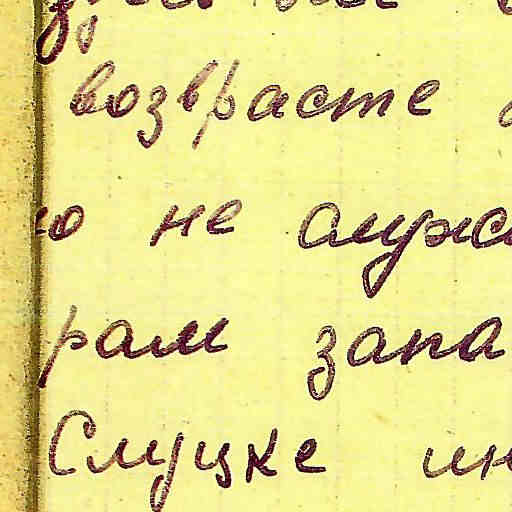 возрасте
не служ
рам запа
Слуцке ин